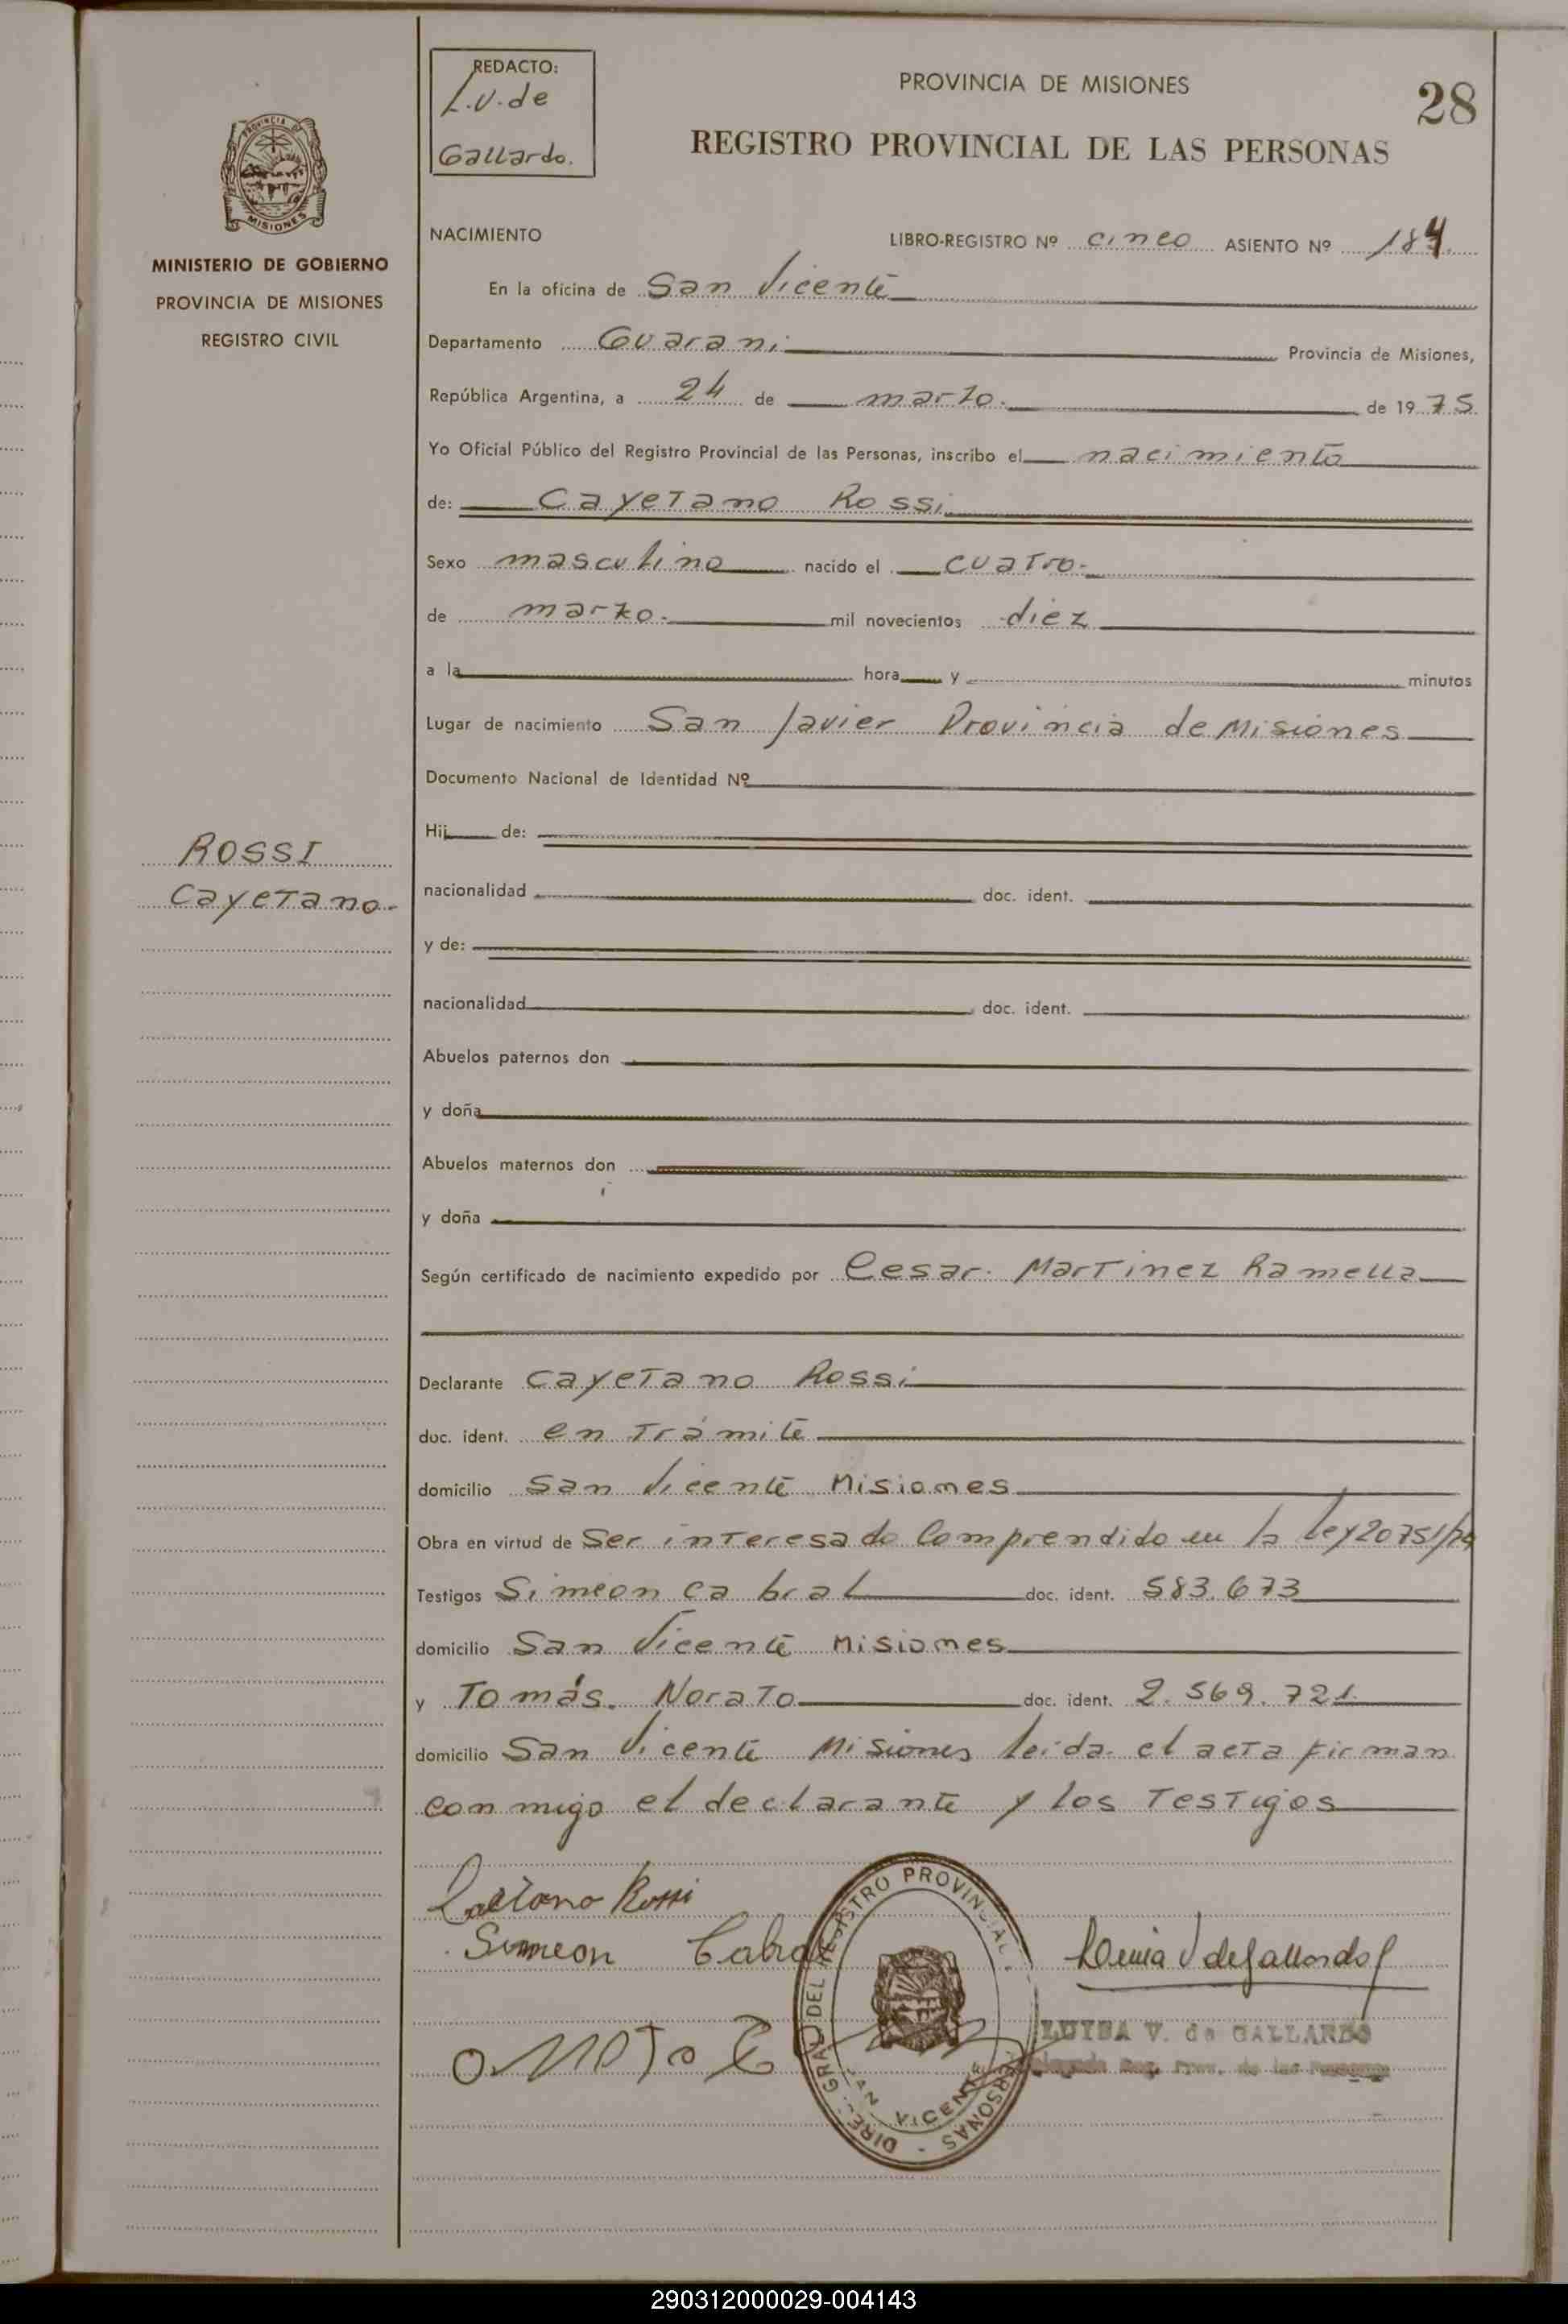 REDACTO:
L.V. de
Gallardo.
PROVINCIA DE MISIONES
28
REGISTRO PROVINCIAL DE LAS PERSONAS
PROVINCIA DE
MISIONES
MINISTERIO DE GOBIERNO
PROVINCIA DE MISIONES
REGISTRO CIVIL
NACIMIENTO LIBRO-REGISTRO Nº cinco ASIENTO Nº 184.
En la oficina de San Vicente
Departamento Guarani Provincia de Misiones,
República Argentina, a 24 de marzo. de 1975
Yo Oficial Público del Registro Provincial de las Personas, inscribo el nacimiento
de: Cayetano Rossi
Sexo masculino nacido el cuatro.
de marzo. mil novecientos diez
a la hora y minutos
Lugar de nacimiento San Javier Provincia de Misiones
Documento Nacional de Identidad Nº
Hij de:
ROSSI
Cayetano.
nacionalidad doc. ident.
y de:
nacionalidad doc. ident.
Abuelos paternos don
y doña
Abuelos maternos don
y doña
Según certificado de nacimiento expedido por Cesar. Martinez Ramella
Declarante Cayetano Rossi
doc. ident. en trámite
domicilio San Vicente Misiones
Obra en virtud de Ser interesado Comprendido en la Ley 20751/74
Testigos Simeon Cabral doc. ident. 583.673
domicilio San Vicente Misiones
y Tomás. Norato doc. ident. 2.569.721.
domicilio San Vicente Misiones leida el acta firman
conmigo el declarante y los Testigos
Caetano Rossi
Simeon Cabral
DIREC. GRAL. DEL REGISTRO PROVINCIAL PERSONAS -
SAN VICENTE
LUISA V. de GALLARDO
290312000029-004143